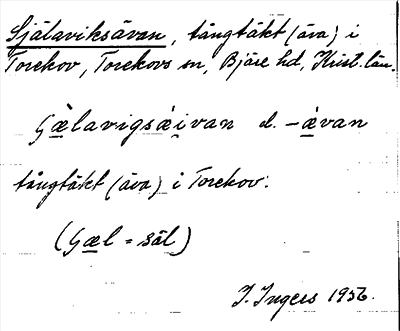 Själaviksävan, tångtäkt (äva) i
Torekov, Torekovs sn, Bjäre hd, Krist. län.
Gælavigsáivan el. -ævan
tångtäkt (äva) i Torekov.
(gæl = säl)
I. Ingers 1936.